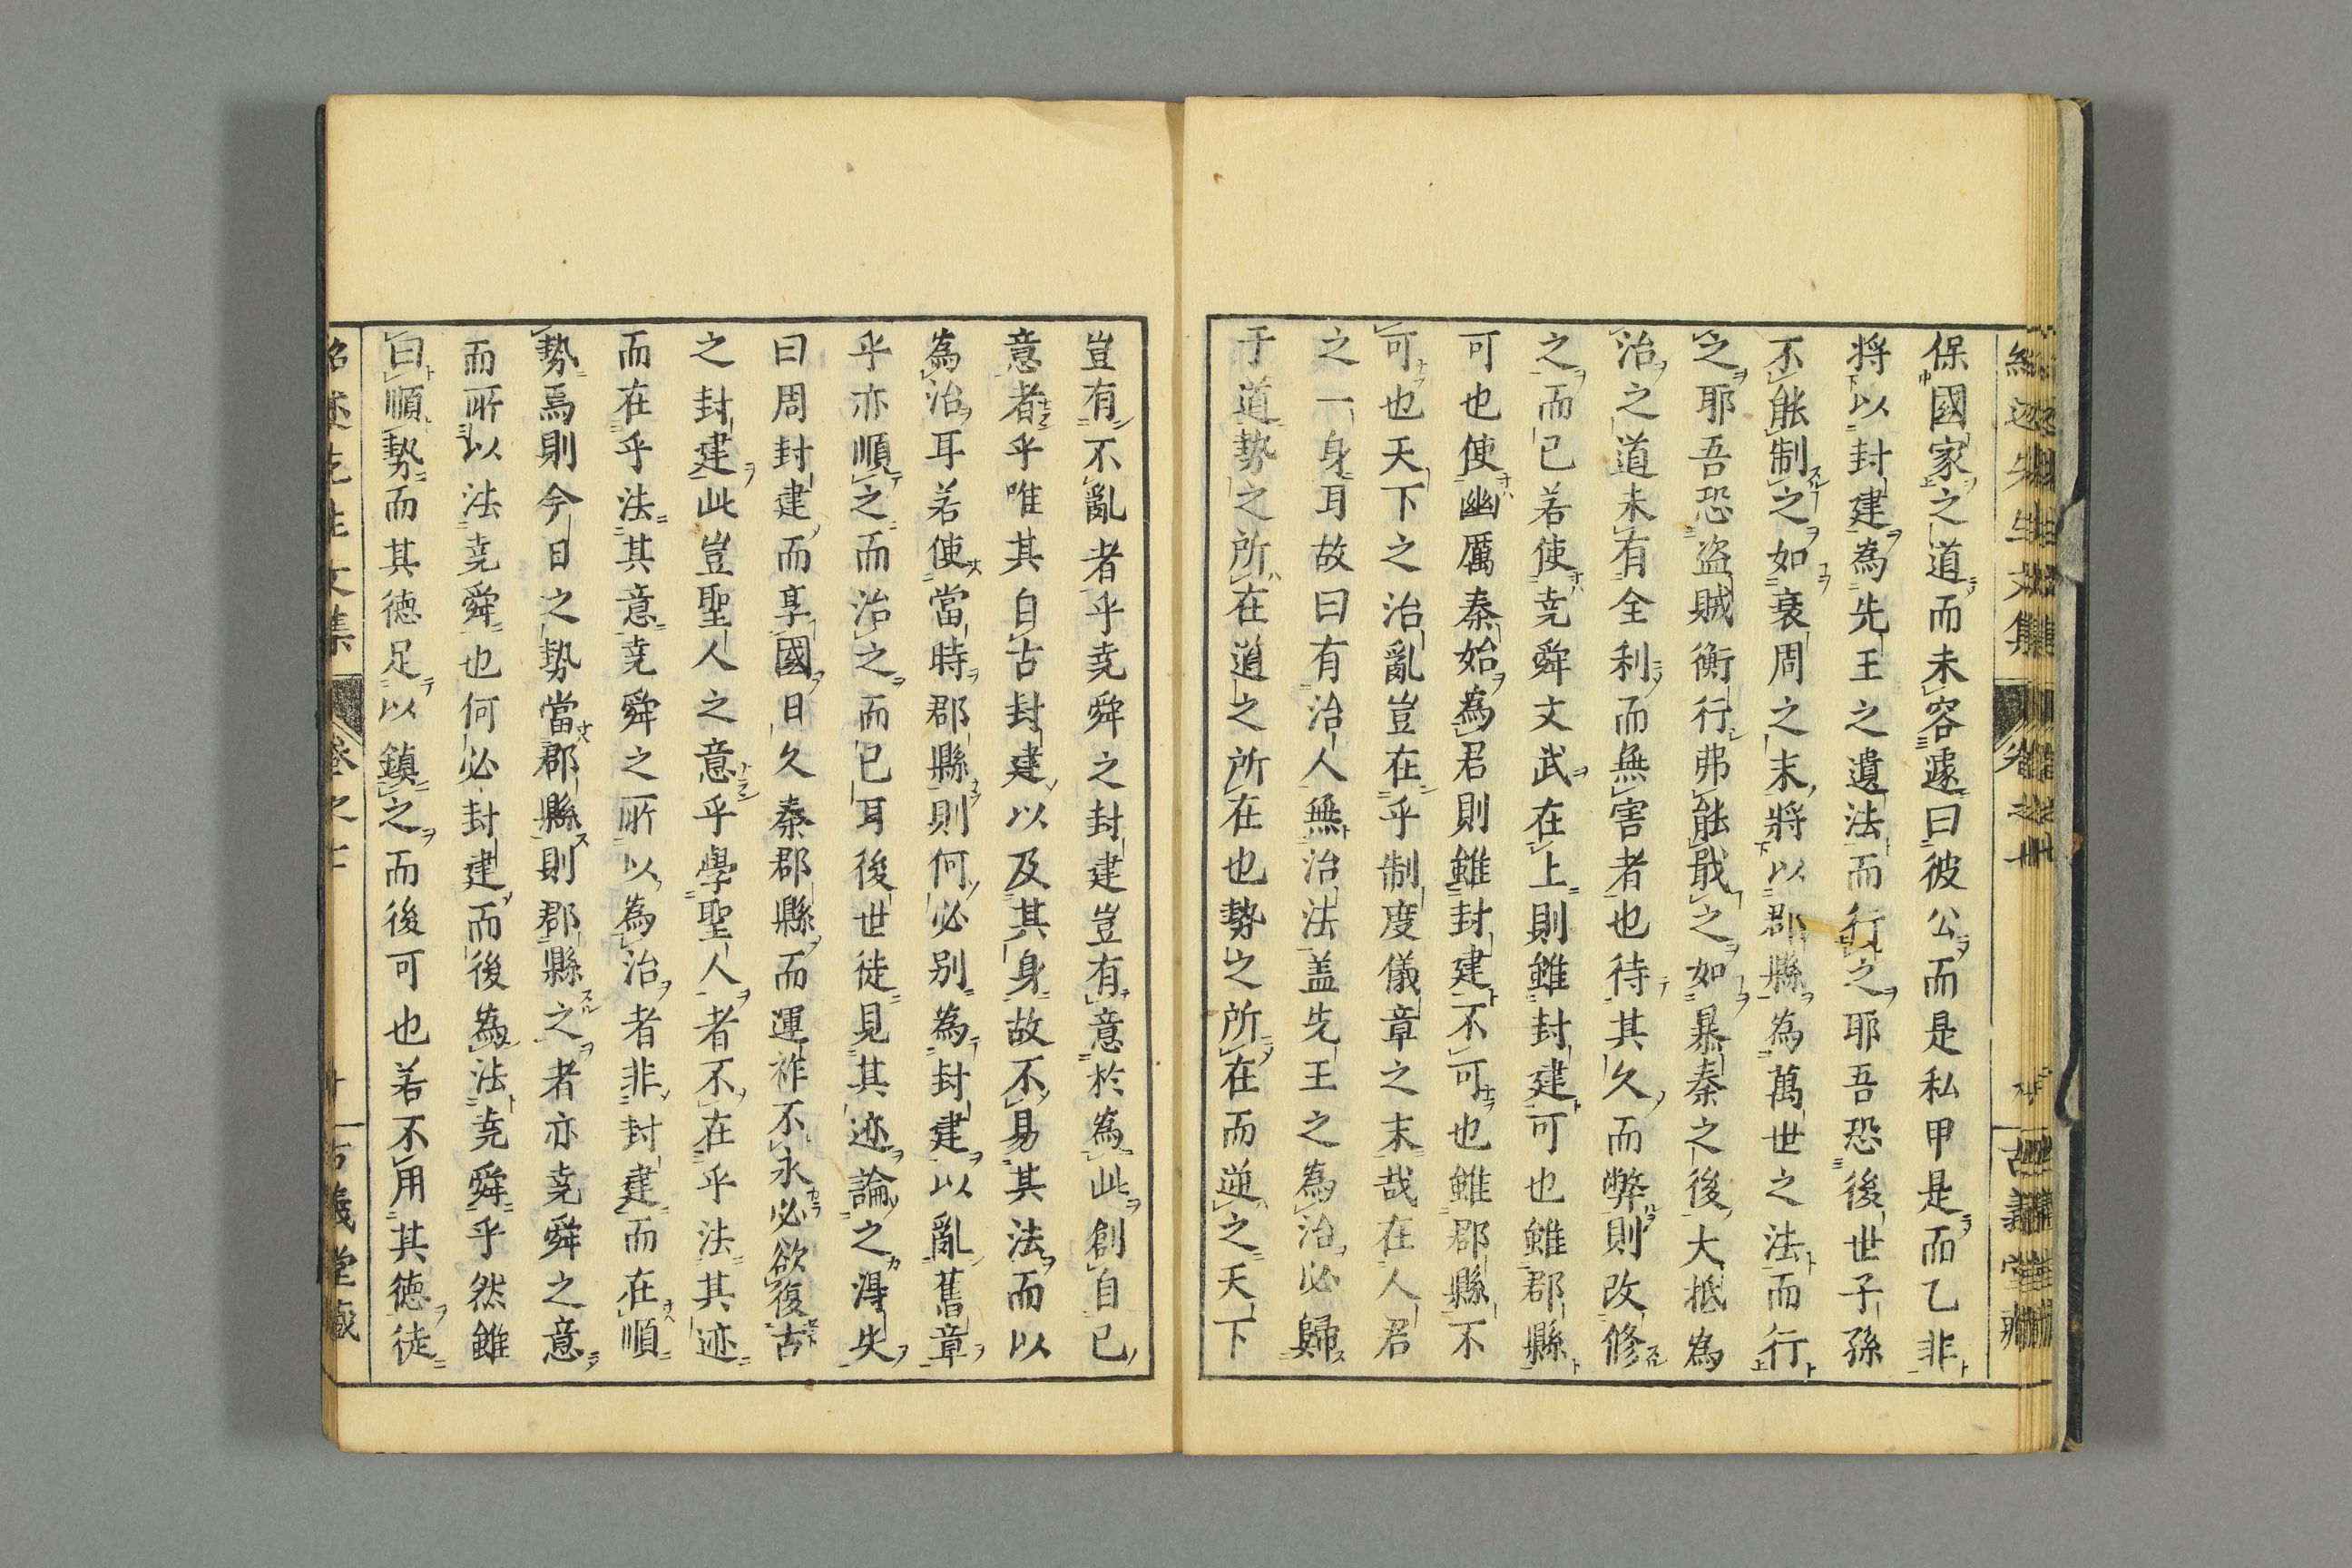 保國家之道而未容遽曰彼公而是私甲是而乙非
將以封建為先王之遺法而行之耶吾恐後世子孫
不能制之如衰周之末將以郡縣為萬世之法而行
之耶吾恐盗賊衡行弗能戢之如暴秦之後大抵為
治之道未有全利而無害者也待其久而弊則改修
之而已若使尭舜文武在上則雖封建可也雖郡縣
可也使幽厲秦始為君則雖封建不可也雖郡縣不
可也天下之治亂豈在乎制度儀章之末哉在人君
之一身耳故曰有治人無治法盖先王之為治必歸
于道勢之所在道之所在也勢之所在而逆之天下
豈有不亂者乎尭舜之封建豈有意於為此創自已
意者乎唯其自古封建以及其身故不易其法而以
為治耳若使當時郡縣則何必別為封建以亂舊章
乎亦順之而治之而已耳後世徒見其迹論之得失
曰周封建而享國日久秦郡縣而運祚不永必欲復古
之封建此豈聖人之意乎學聖人者不在乎法其迹
而在乎法其意尭舜之所以為治者非封建而在順
勢焉則今日之勢當郡縣則郡縣之者亦尭舜之意
而所以法尭舜也何必封建而後為法尭舜乎然雖
曰順勢而其徳足以鎮之而後可也若不用其徳徒